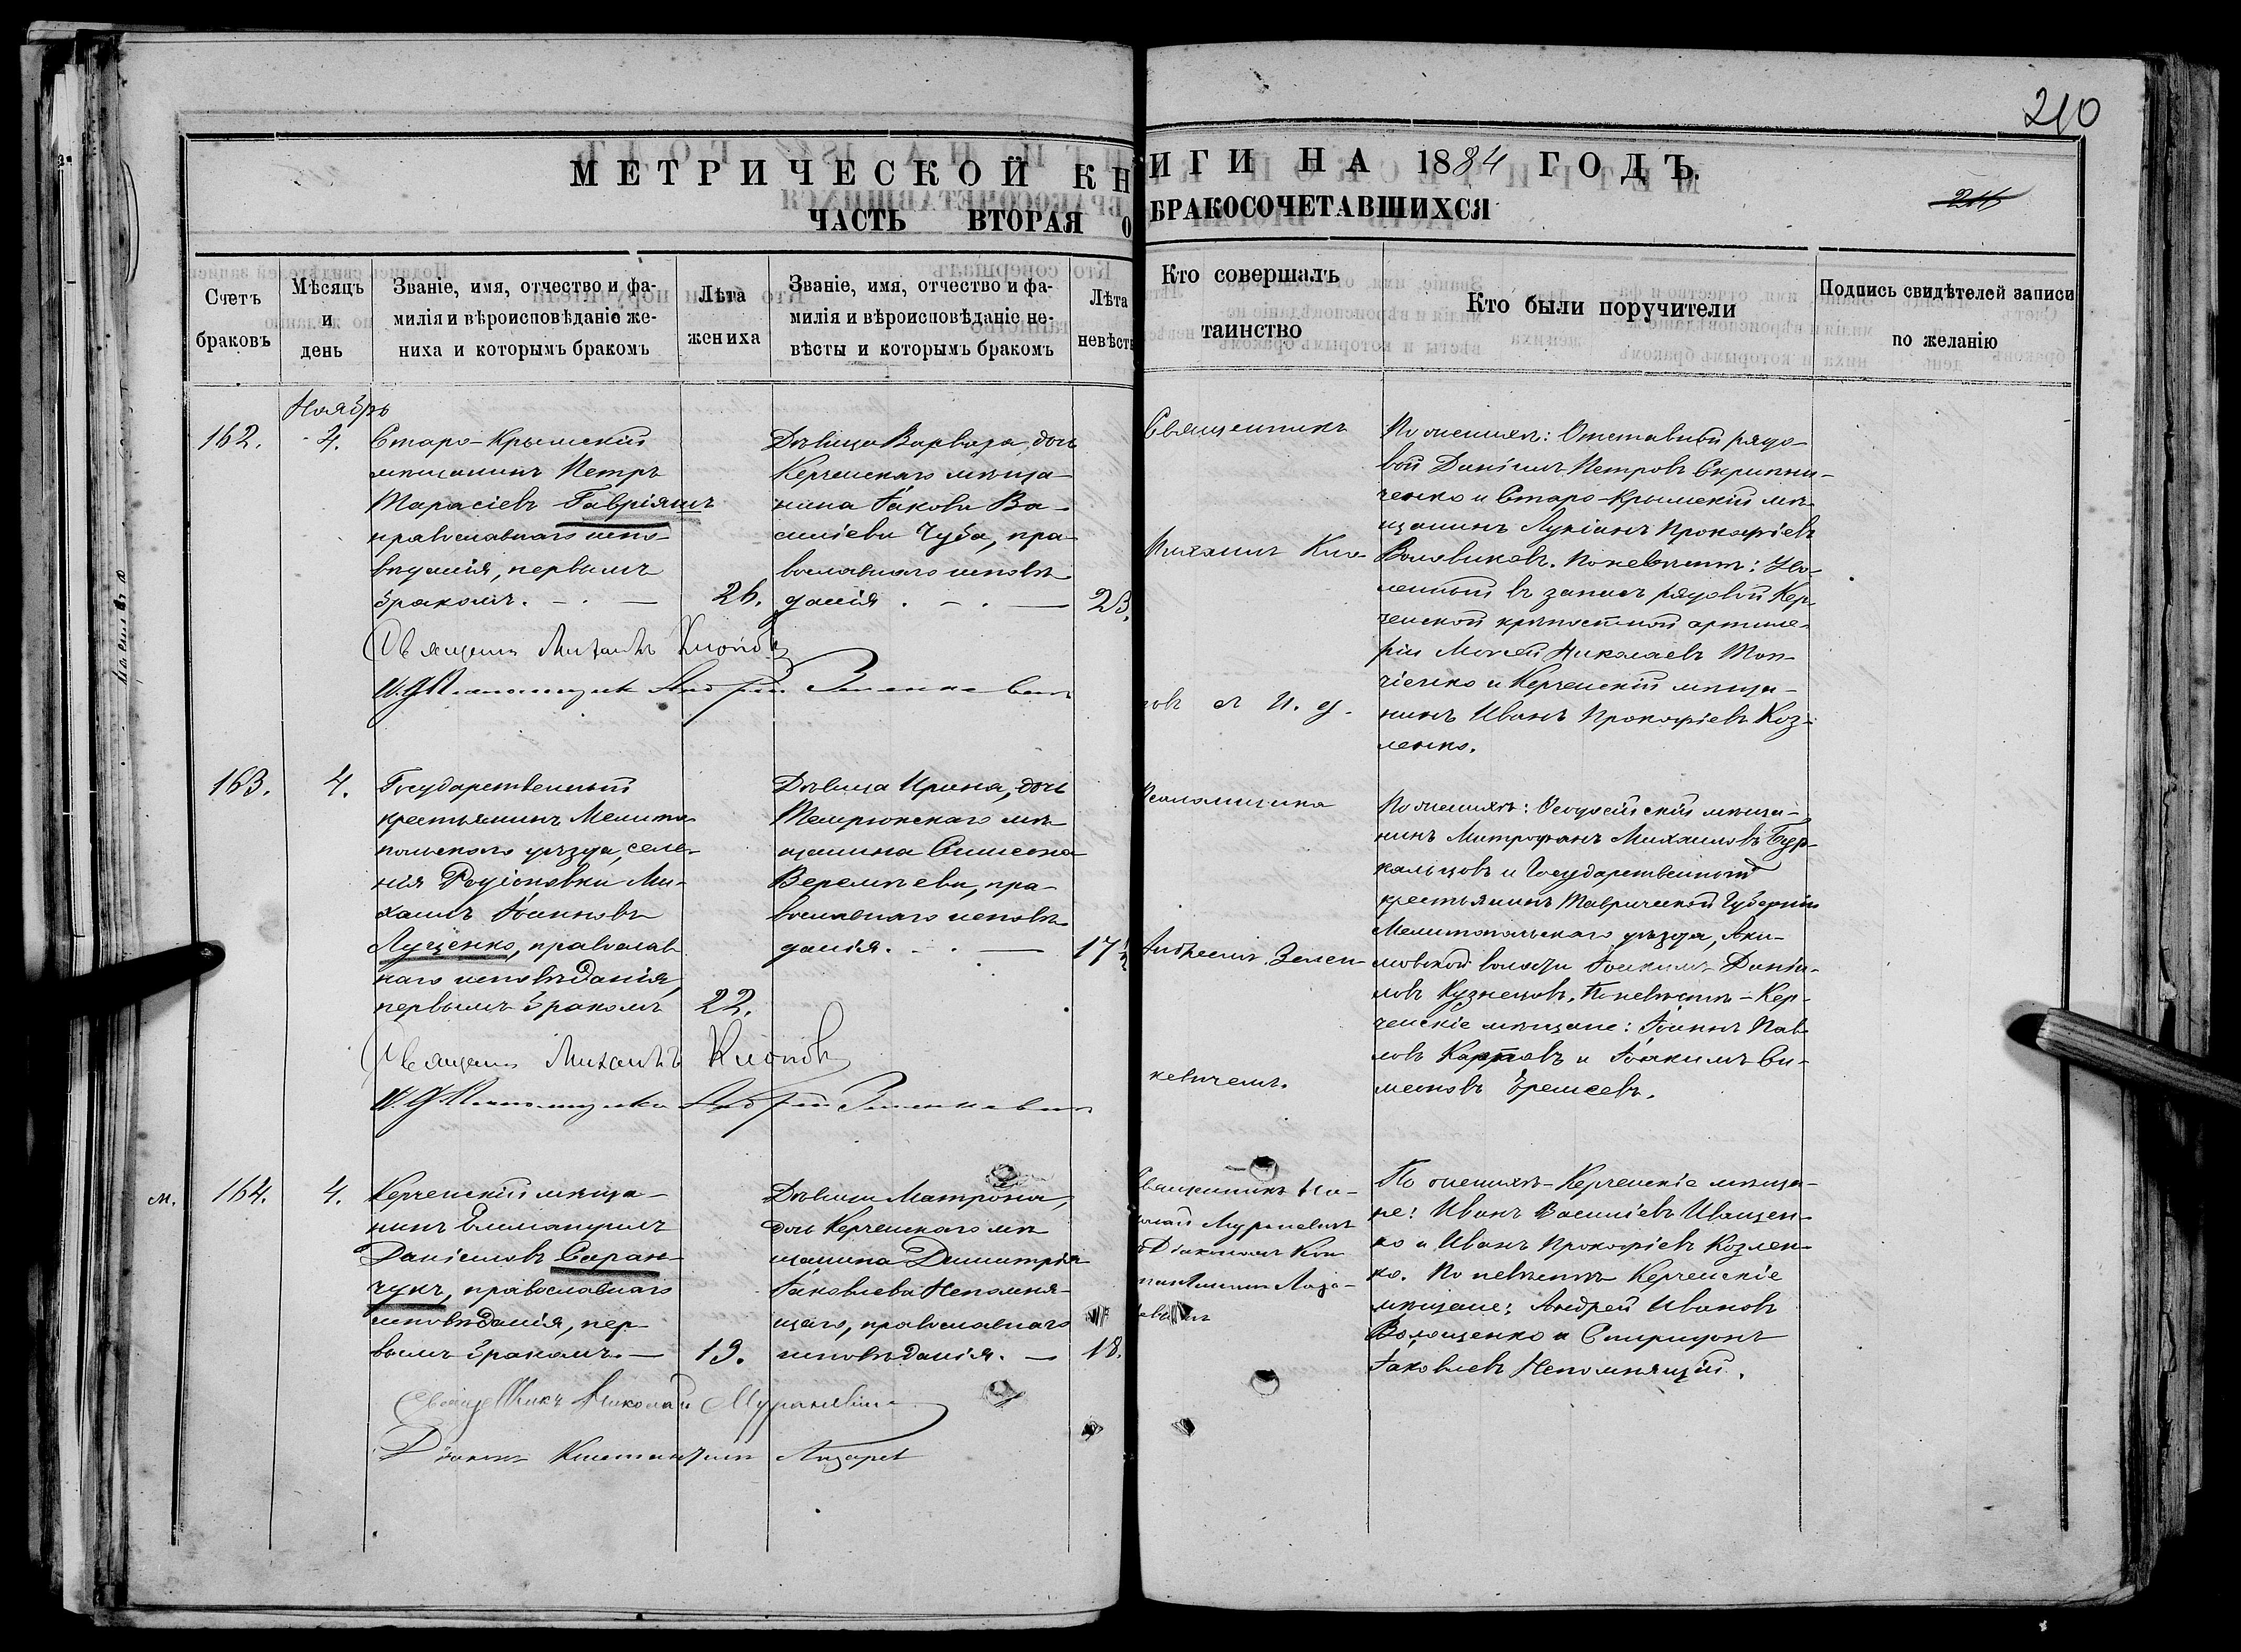 210
МЕТРИЧЕСКОЙ КНИГИ НА 1884 ГОДЪ.
ЧАСТЬ ВТОРАЯ О БРАКОСОЧЕТАВШИХСЯ
Счетъ браковъ
Мѣсяцъ и день
Званіе, имя, отчество и фа-
милія и вѣроисповѣданіе же-
ниха и которымъ бракомъ
Лѣта жениха
Званіе, имя, отчество и фа-
милія и вѣроисповѣданіе не-
вѣсты и которымъ бракомъ
Лѣта невѣсты
Кто совершалъ
таинство
Кто были поручители
Подпись свидѣтелей записи
по желанію
Ноябрь
162.
4.
Старо-Крымскій
мѣщанинъ Петръ
Тарасіевъ Гавріяшъ
православнаго испо-
вѣданія, первымъ
бракомъ. 26.
Дѣвица Варвара, дочь
Керченскаго мѣща-
нина Іакова Ва-
силіева Чуба, пра-
вославнаго исповѣ-
данія. 23.
Священникъ
Михаилъ Кло-
повъ съ И. д.
По женихѣ: Отставной рядо-
вой Даніилъ Петровъ Скрипни-
ченко и Старо-Крымскій мѣ-
щанинъ Лукіанъ Прокофіевъ
Волявиковъ. По невѣстѣ: Уво-
ленный въ запасъ рядовой Кер-
ченской крѣпостной артиле-
ріи Моисей Николаевъ Топ-
чіенко и Керченскій мѣща-
нинъ Иванъ Прокофіевъ Коз-
ленко.
Священникъ Михаилъ Клоповъ
И. д. Псаломщика Андрей Зеленкевичъ
163.
4.
Государственный
крестьянинъ Мелито-
польскаго уѣзда, селе-
нія Родіоновки Ми-
хаилъ Іоанновъ
Луценко, православ-
наго исповѣданія,
первымъ бракомъ 22.
Дѣвица Ирина, дочь
Темрюкскаго мѣ-
щанина Симеона
Веремѣева, пра-
вославнаго исповѣ-
данія. 17 1/2
Псаломщика
Андреемъ Зелен-
кевичемъ.
По женихѣ: Ѳеодосійскій мѣща-
нинъ Митрофанъ Михаиловъ Бур-
кальцовъ и Государственный
крестьянинъ Таврической Губерніи
Мелитопольскаго уѣзда, Аки-
мовской волости Іоакимъ Даніи-
ловъ Кузнецовъ. По невѣстѣ - Кер-
ченскіе мѣщане: Іоаннъ Пав-
ловъ Карповъ и Іоакимъ Си-
меоновъ Еремеевъ.
Священникъ Михаилъ Клоповъ
И. д. Псаломщика Андрей Зеленкевичъ
м.
164.
4.
Керченскій мѣща-
нинъ Еммануилъ
Даніиловъ Саран-
чукъ, православнаго
исповѣданія, пер-
вымъ бракомъ. 19.
Дѣвица Матрона,
дочь Керченскаго мѣ-
щанина Димитрія
Іаковлева Непомня-
щаго, православнаго
исповѣданія. 18.
Священникъ Ни-
колай Мураневичъ
съ Діакономъ Кон-
стантиномъ Лаза-
По женихѣ - Керченскіе мѣща-
не: Иванъ Василіевъ Иващен-
ко и Иванъ Прокофіевъ Козлен-
ко. По невѣстѣ Керченскіе
мѣщане: Андрей Ивановъ
Волощенко и Спиридонъ
Іаковлевъ Непомнящій.
Священникъ Николай Мураневичъ
Діаконъ Константинъ Лазарев